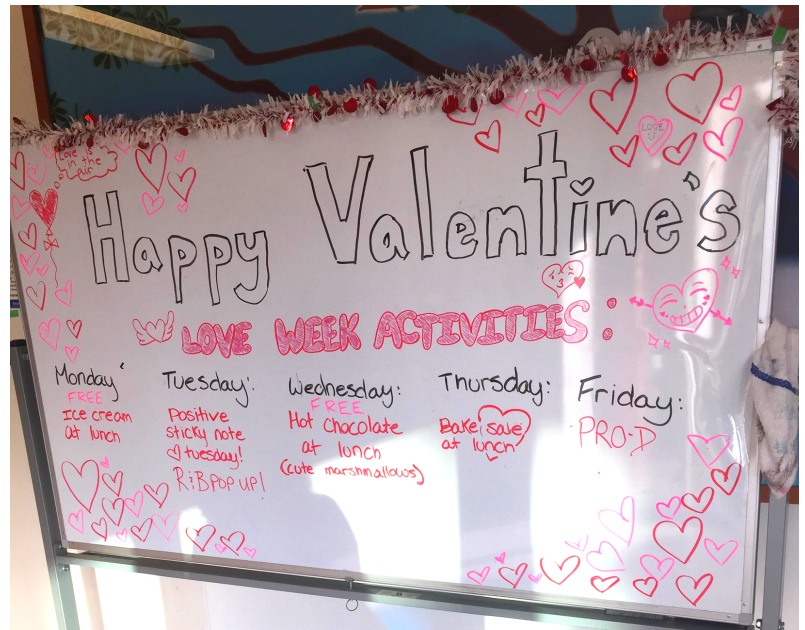 Love is
in the
air
LOVE
U
Happy Valentine's
LOVE WEEK ACTIVITIES:
Monday
FREE
Ice cream
at lunch
Tuesday:
Positive
sticky note
tuesday!
R&B POP UP!
Wednesday:
FREE
Hot chocolate
at lunch
(cute marshmallows)
Thursday:
Bake sale
at lunch
Friday:
PRO-D